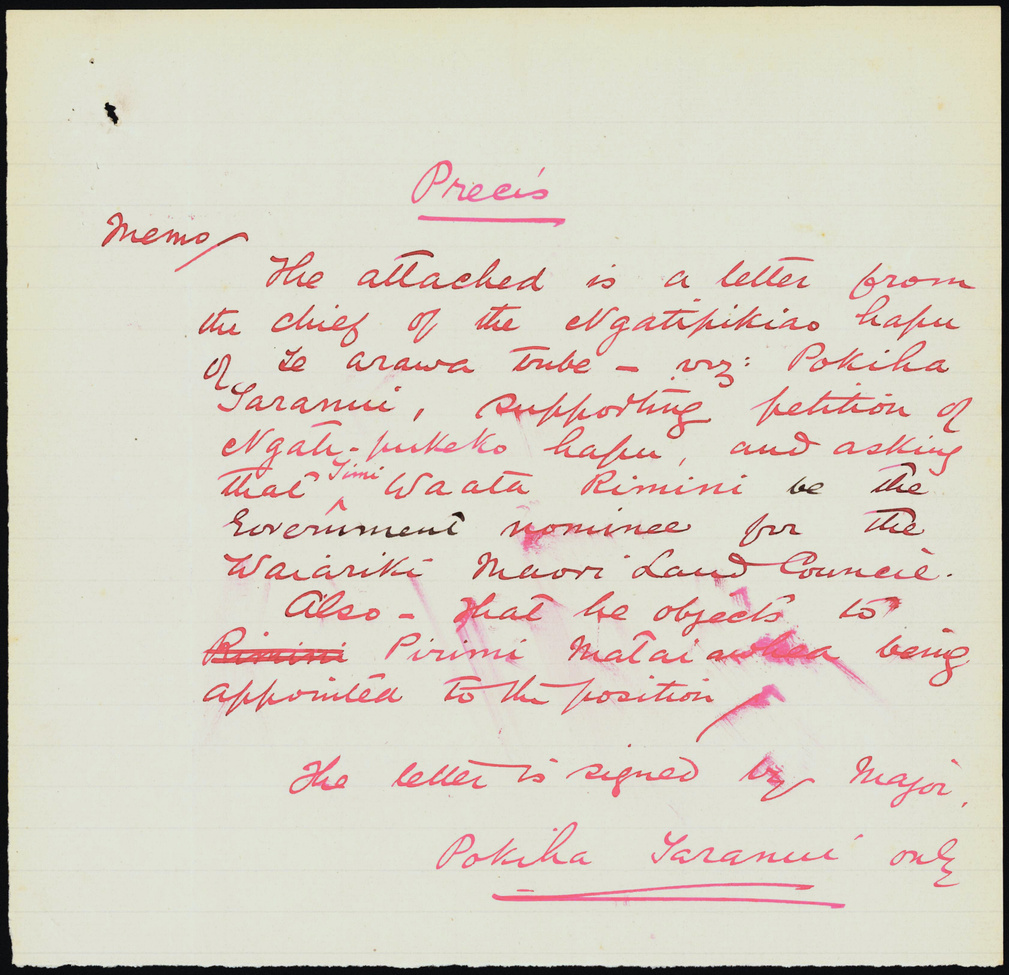 Precis
Memo/
The attached is a letter from
the chief of the Ngatipikiao hapu
of Te arawa tribe - viz: Pokiha
Taranui, supporting petition of
Ngati-pukeko hapu, and asking
that Timi Waata Rimini be the
Government nominee for the
Waiariki Maori Land Council.
Also - that he objects to
Rimini Pirimi Mataiawhea being
appointed to the position/
The letter is signed by Major,
Pokiha Taranui only